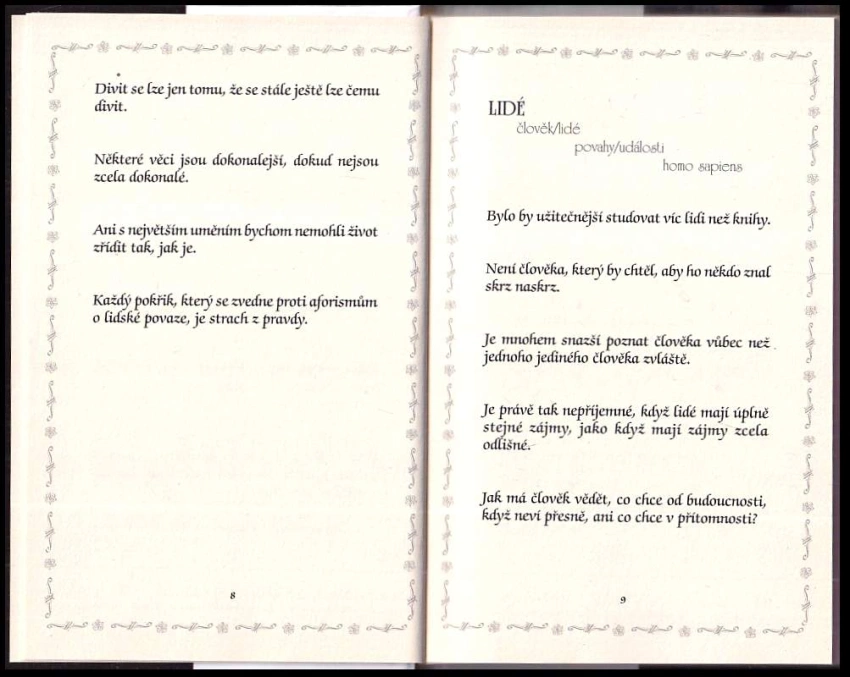 Divit se lze jen tomu, že se stále ještě lze čemu
divit.
Některé věci jsou dokonalejší, dokud nejsou
zcela dokonalé.
Ani s největším uměním bychom nemohli život
zřídit tak, jak je.
Každý pokřik, který se zvedne proti aforismům
o lidské povaze, je strach z pravdy.
8
LIDÉ
člověk/lidé
povahy/události
homo sapiens
Bylo by užitečnější studovat víc lidi než knihy.
Není člověka, který by chtěl, aby ho někdo znal
skrz naskrz.
Je mnohem snazší poznat člověka vůbec než
jednoho jediného člověka zvláště.
Je právě tak nepříjemné, když lidé mají úplně
stejné zájmy, jako když mají zájmy zcela
odlišné.
Jak má člověk vědět, co chce od budoucnosti,
když neví přesně, ani co chce v přítomnosti?
9